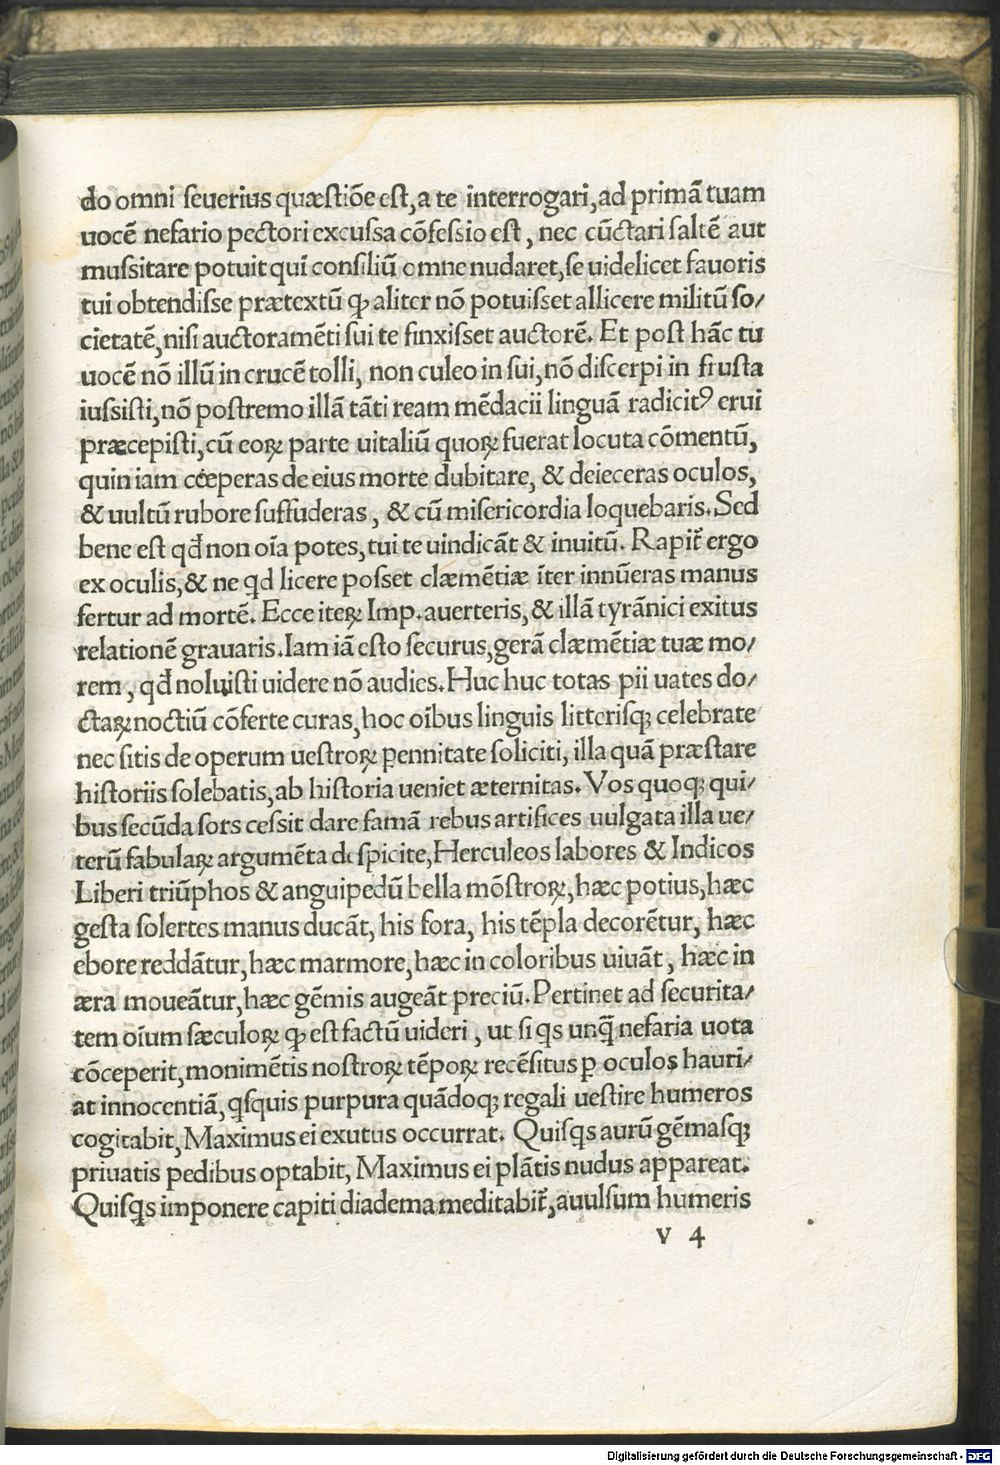 do omni ſeuerius quæſtiōe eſt, a te interrogari, ad primā tuam
uocē nefario pectori excuſſa cōfeſſio eſt, nec cūctari ſaltē aut
muſsitare potuit qui conſiliū omne nudaret, ſe uidelicet fauoris
tui obtendiſse prætextū ꝙ aliter nō potuiſset allicere militū ſo/
cietatē, niſi auctoramēti ſui te finxiſset auctorē. Et poſt hāc tu
uocē nō illū in crucē tolli, non culeo in ſui, nō diſcerpi in fruſta
iuſsiſti, nō poſtremo illā tāti ream mēdacii linguā radicitꝰ erui
præcepiſti, cū eoꝝ parte uitaliū quoꝝ fuerat locuta cōmentū,
quin iam cœperas de eius morte dubitare, & deieceras oculos,
& uultū rubore ſuffuderas, & cū miſericordia loquebaris. Sed
bene eſt qđ non oīa potes, tui te uindicāt & inuitū. Rapit̄ ergo
ex oculis, & ne qd licere poſset clæmētiæ īter innūeras manus
fertur ad mortē. Ecce iteꝝ Imp. auerteris, & illā tyrānici exitus
relationē grauaris. Iam iā eſto ſecurus, gerā clæmētiæ tuæ mo/
rem, qđ noluiſti uidere nō audies. Huc huc totas pii uates do/
ctaꝝ noctiū cōferte curas, hoc oībus linguis litteriſqꝫ celebrate
nec ſitis de operum ueſtroꝝ ꝑennitate ſoliciti, illa quā præſtare
hiſtoriis ſolebatis, ab hiſtoria ueniet æternitas. Vos quoqꝫ qui/
bus ſecūda ſors ceſsit dare famā rebus artifices uulgata illa ue/
terū fabulaꝝ argumēta deſpicite, Herculeos labores & Indicos
Liberi triūphos & anguipedū bella mōſtroꝝ, hæc potius, hæc
geſta ſolertes manus ducāt, his fora, his tēpla decorētur, hæc
ebore reddātur, hæc marmore, hæc in coloribus uiuāt, hæc in
æra moueātur, hæc gēmis augeāt preciū. Pertinet ad ſecurita/
tem oīum ſæculoꝝ ꝙ eſt factū uideri, ut ſi qs unq̄ nefaria uota
cōceperit, monimētis noſtroꝝ tēpoꝝ recēſitus ꝑ oculos hauri/
at innocentiā, qſquis purpura quādoqꝫ regali ueſtire humeros
cogitabit, Maximus ei exutus occurrat. Quiſqs aurū gēmaſqꝫ
priuatis pedibus optabit, Maximus ei plātis nudus appareat.
Quiſqs imponere capiti diadema meditabit̄, auulſum humeris
v 4
Digitalisierung gefördert durch die Deutsche Forschungsgemeinschaft - DFG